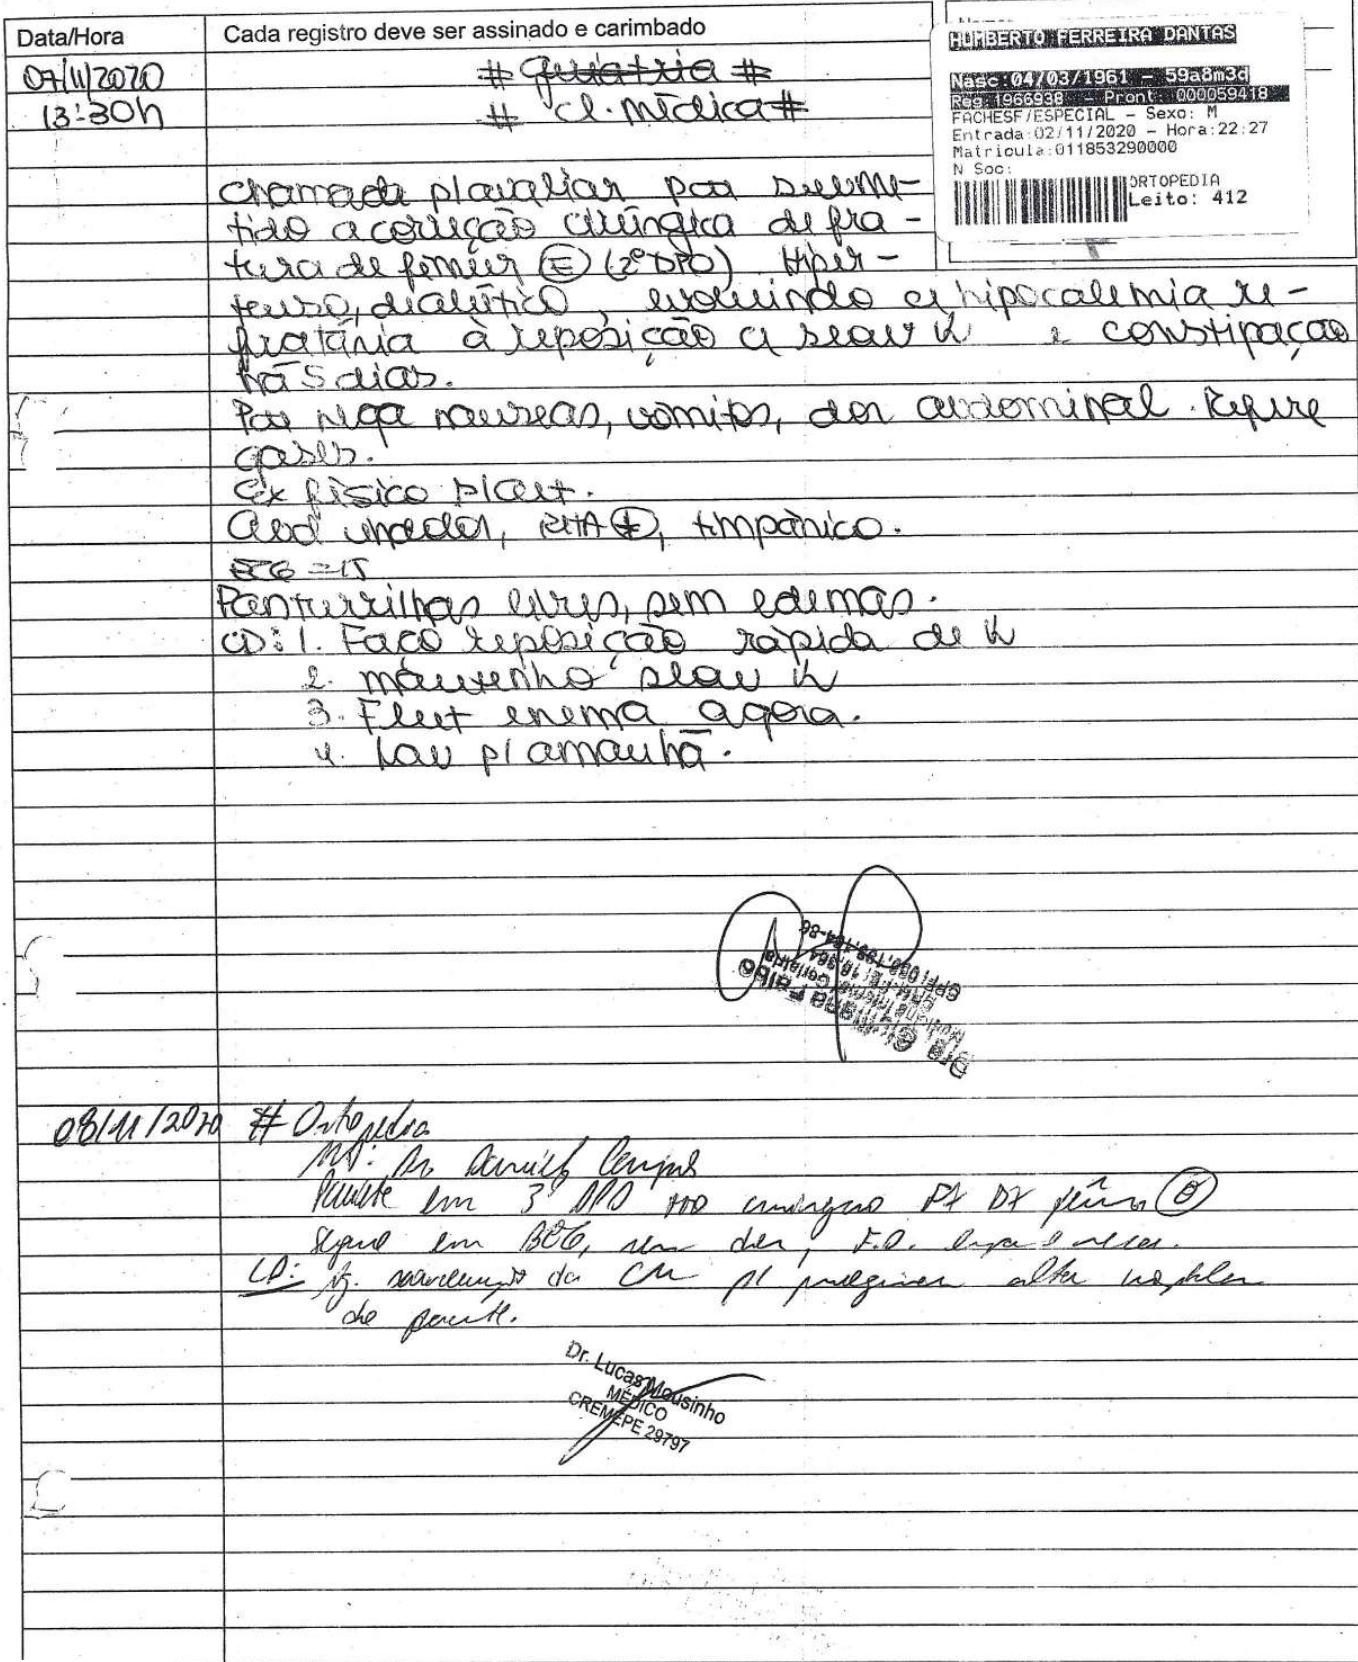 Data/Hora
Cada registro deve ser assinado e carimbado
HUMBERTO FERREIRA DANTAS
Nasc:04/03/1961 - 59a8m3d
Reg:1966938 - Pront: 000059418
FACHESF/ESPECIAL - Sexo: M
Entrada:02/11/2020 - Hora:22:27
Matricula:011853290000
N Soc:
ORTOPEDIA
Leito: 412
07/11/2020
13:30h
# #
# Cl. médica #
chamada p/avaliar pac subme-
tido a correção cirúrgica de fra-
tura de fêmur (E) (2º DPO). Hiper-
tenso, dialítico, evoluindo c/ hipocalemia re-
fratária à reposição c/ slow K e constipação
há 5 dias.
Pac nega nauseas, vomitos, dor abdominal. Refere
gases.
Ex físico
Abd indolor, RHA (+), timpânico.
ECG = 15
Panturrilhas livres, sem edemas.
CD: 1. Faço reposição rápida de K
2. mantenho slow K
3. Fleet enema agora.
4. Lab p/ amanhã.
08/11/2020
# Ortopedia
Dr Daniel
Paciente em 3º DPO
Segue em BEG, sem dor, F.O. limpa e seca.
CD: da CM p/ alta
de
Dr. Lucas Mousinho
MÉDICO
CREMEPE 29797